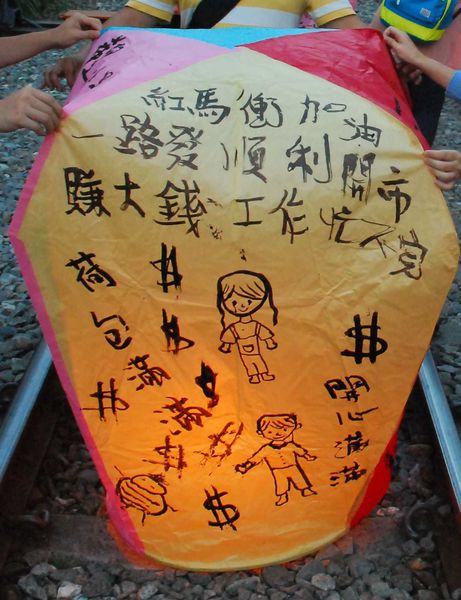 紅馬衝加油
一路發順利開市
賺大錢工作忙不完
荷包滿滿
$
$
$
$
$
$
開心滿滿